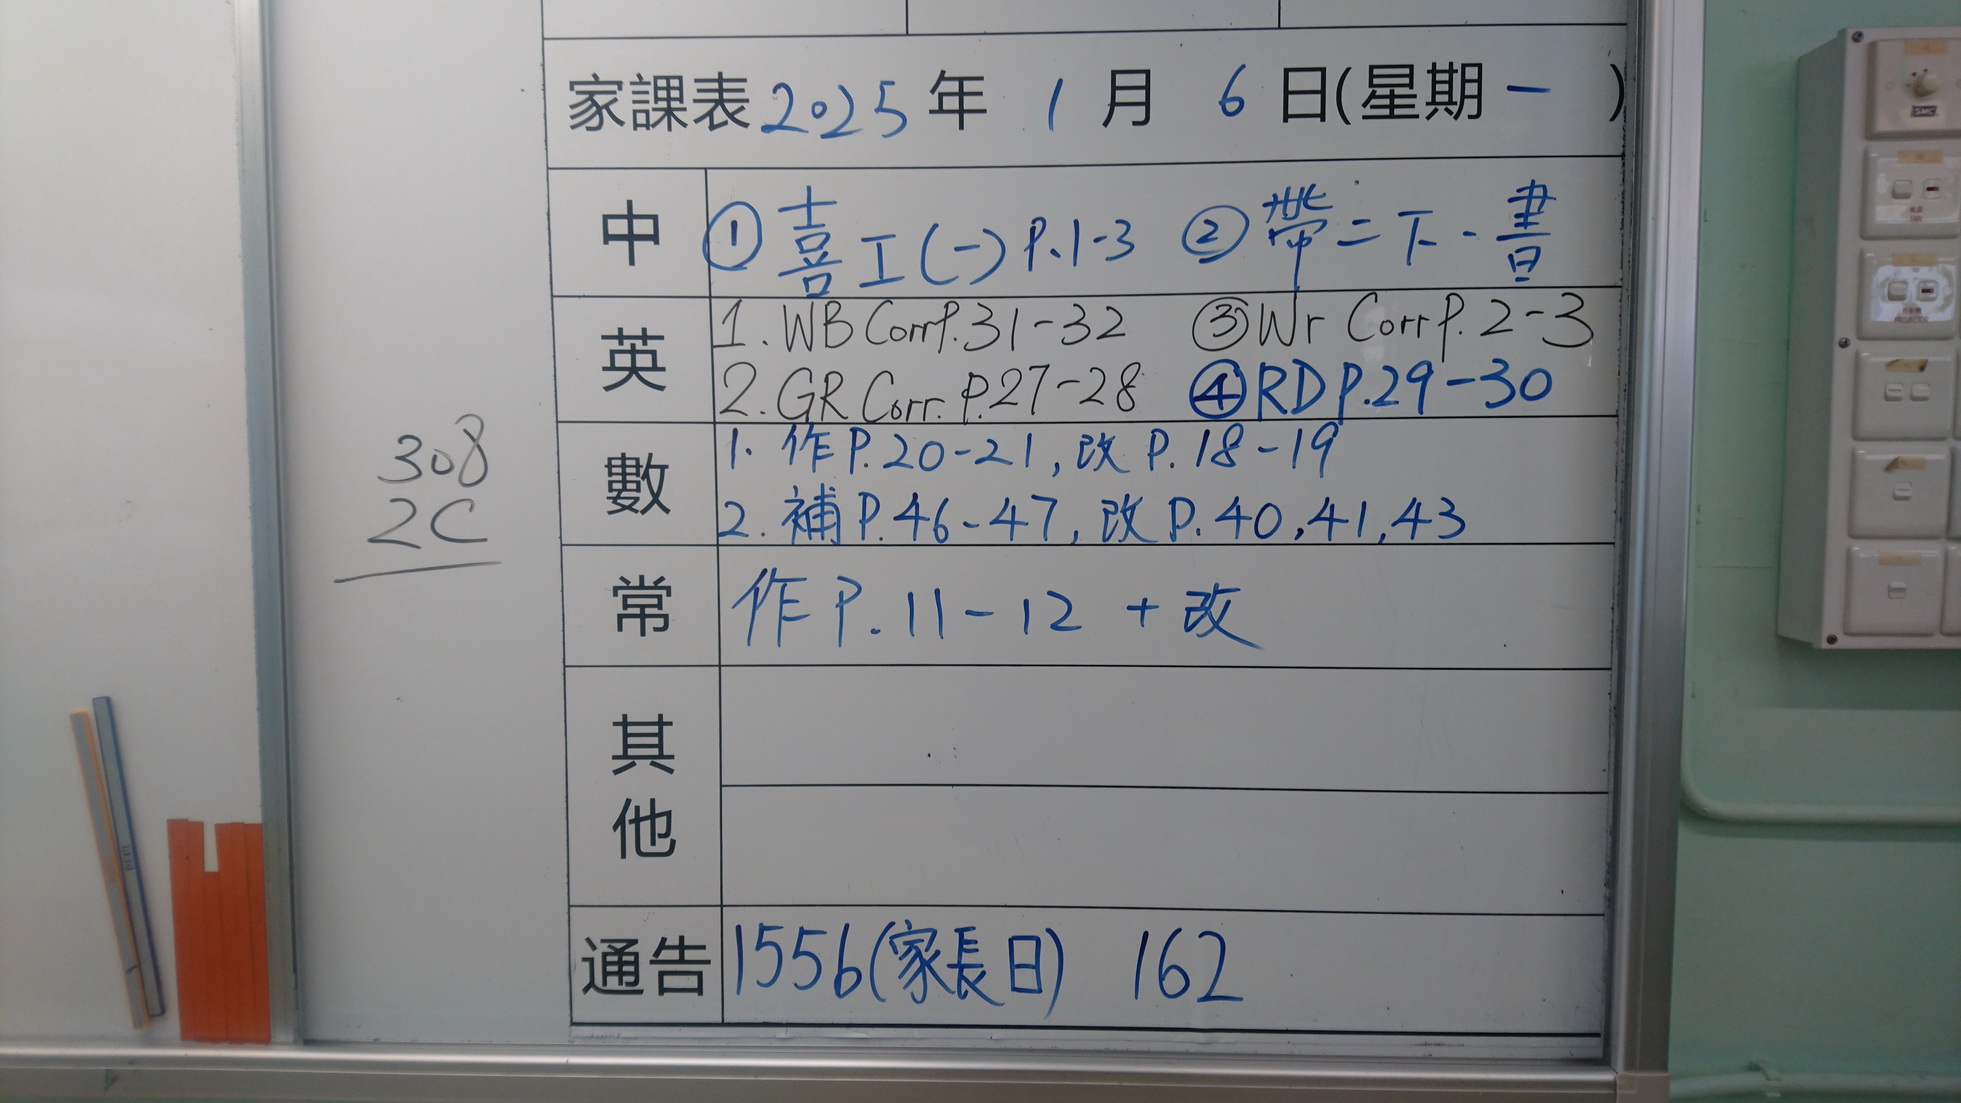 家課表 2025 年 1 月 6 日(星期一)
中 ① 喜工(一) P.1-3 ② 帶二下.一書
英 1. WB Corr P.31-32 ③ Wr Corr P. 2-3
2. GR Corr. P.27-28 ④ RD P.29-30
308
2C
數 1. 作 P.20-21, 改 P.18-19
2. 補 P.46-47, 改 P.40,41,43
常 作 P.11-12 + 改
其他
通告 155b(家長日) 162